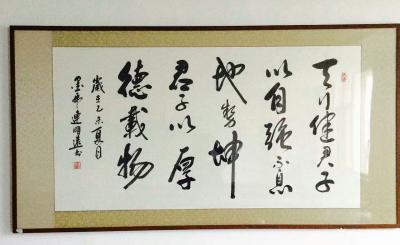 天行健君子
以自强不息
地势坤
君子以厚
德載物
歲在乙未夏月